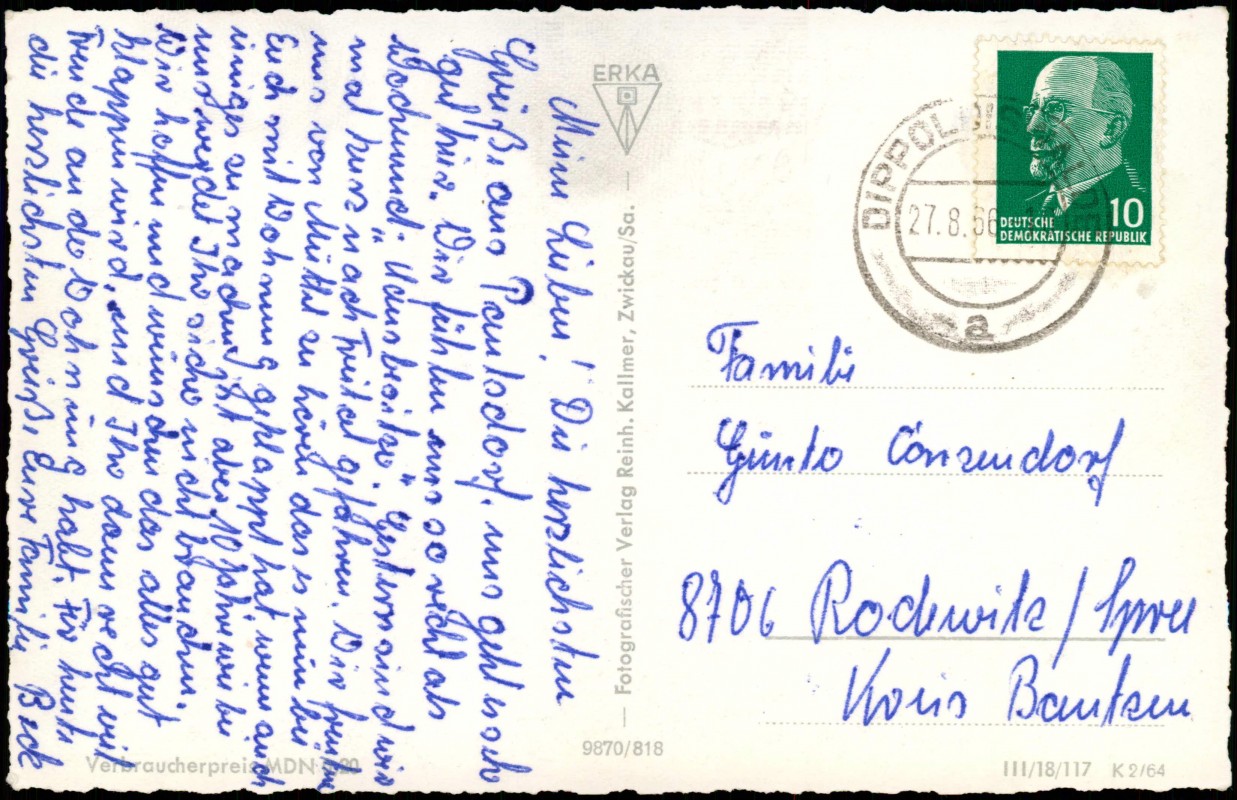 Meine Lieben! Die herzlichsten
Grüße aus Paulsdorf. uns geht es sehr
gut hier. Wir fühlen uns so recht als
Wochenend-"Hausbesitzer". Gestern sind wir
mal kurz nach Freital gefahren. Wir freuen
uns von Mutti zu hören das es nun bei
Euch mit Wohnung geklappt hat, wenn auch
einiges zu machen ist aber 10 Jahre wie bei
uns werdet Ihr sicher nicht brauchen.
Wir hoffen und wünschen das alles gut
klappen wird, und Ihr dann recht viel
Freude an der Wohnung habt. Für heute
die herzlichsten Grüße Eure Familie Beck
ERKA
Fotografischer Verlag Reinh. Kallmer, Zwickau/Sa.
9870/818
Verbraucherpreis MDN 0,20
DIPPOLDIS
27.8.66
a
10
DEUTSCHE
DEMOKRATISCHE REPUBLIK
Familie
Günter Conzendorf
8706 Rodewitz/Spree
Kreis Bautzen
III/18/117 K 2/64